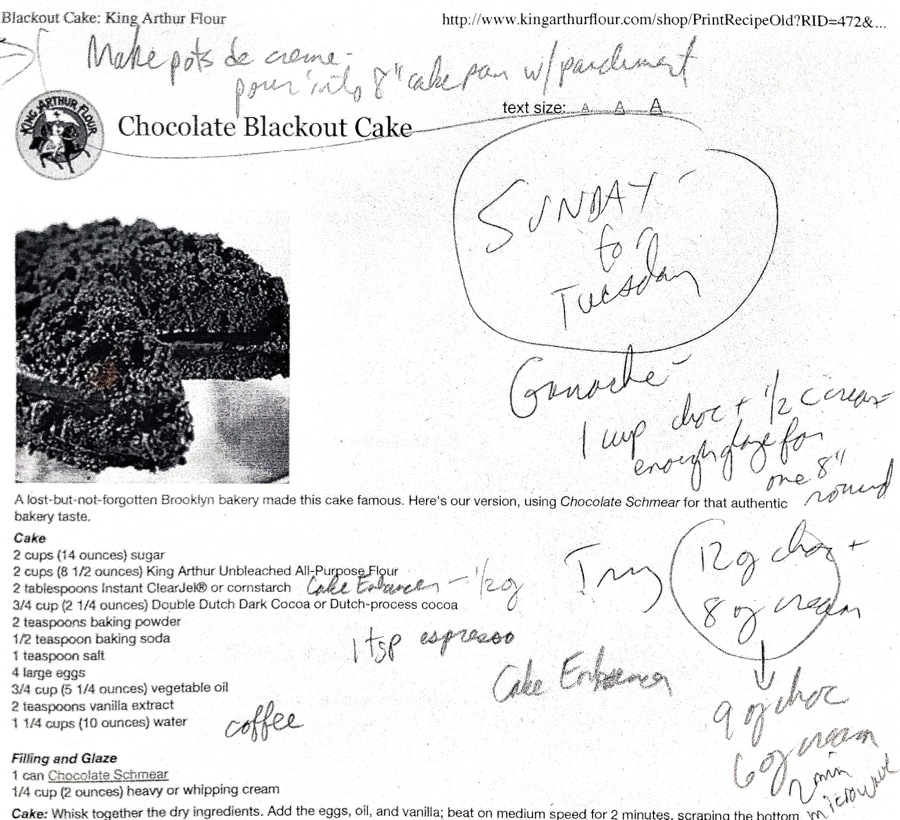 Blackout Cake: King Arthur Flour
http://www.kingarthurflour.com/shop/PrintRecipeOld?RID=472&...
Make pots de creme -
pour into 8" cake pan w/ parchment
KING ARTHUR FLOUR
text size: A A A
Chocolate Blackout Cake
SUNDAY -
to
Tuesday
Ganache -
1 cup choc + 1/2 C cream =
enough glaze for
one 8"
round
A lost-but-not-forgotten Brooklyn bakery made this cake famous. Here's our version, using Chocolate Schmear for that authentic
bakery taste.
Cake
2 cups (14 ounces) sugar
2 cups (8 1/2 ounces) King Arthur Unbleached All-Purpose Flour
2 tablespoons Instant ClearJel® or cornstarch Cake Enhancer - 1/2 oz
3/4 cup (2 1/4 ounces) Double Dutch Dark Cocoa or Dutch-process cocoa
2 teaspoons baking powder
1/2 teaspoon baking soda
1 teaspoon salt
4 large eggs
3/4 cup (5 1/4 ounces) vegetable oil
2 teaspoons vanilla extract
1 1/4 cups (10 ounces) water
1 tsp espresso
coffee
Cake Enhancer
Try 12 oz choc +
8 oz cream
9 oz choc
6 oz cream
2 min
microwave
Filling and Glaze
1 can Chocolate Schmear
1/4 cup (2 ounces) heavy or whipping cream
Cake: Whisk together the dry ingredients. Add the eggs, oil, and vanilla; beat on medium speed for 2 minutes, scraping the bottom